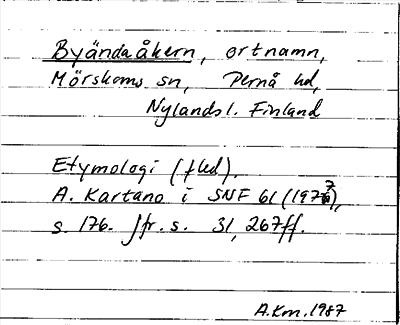 Byändaåkern, ortnamn,
Mörskoms sn, Pernå hd,
Nylands l. Finland
Etymologi (fled).
A. Kartano i SNF 61 (1977),
s. 176. Jfr. s. 31, 267ff.
A.Km. 1987